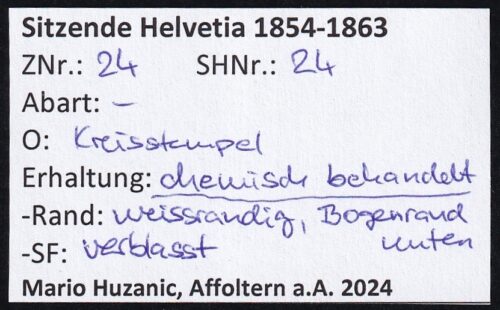 Sitzende Helvetia 1854-1863
ZNr.: 24 SHNr.: 24
Abart: –
O: Kreisstempel
Erhaltung: chemisch behandelt
-Rand: weissrandig, Bogenrand
unten
-SF: verblasst
Mario Huzanic, Affoltern a.A. 2024